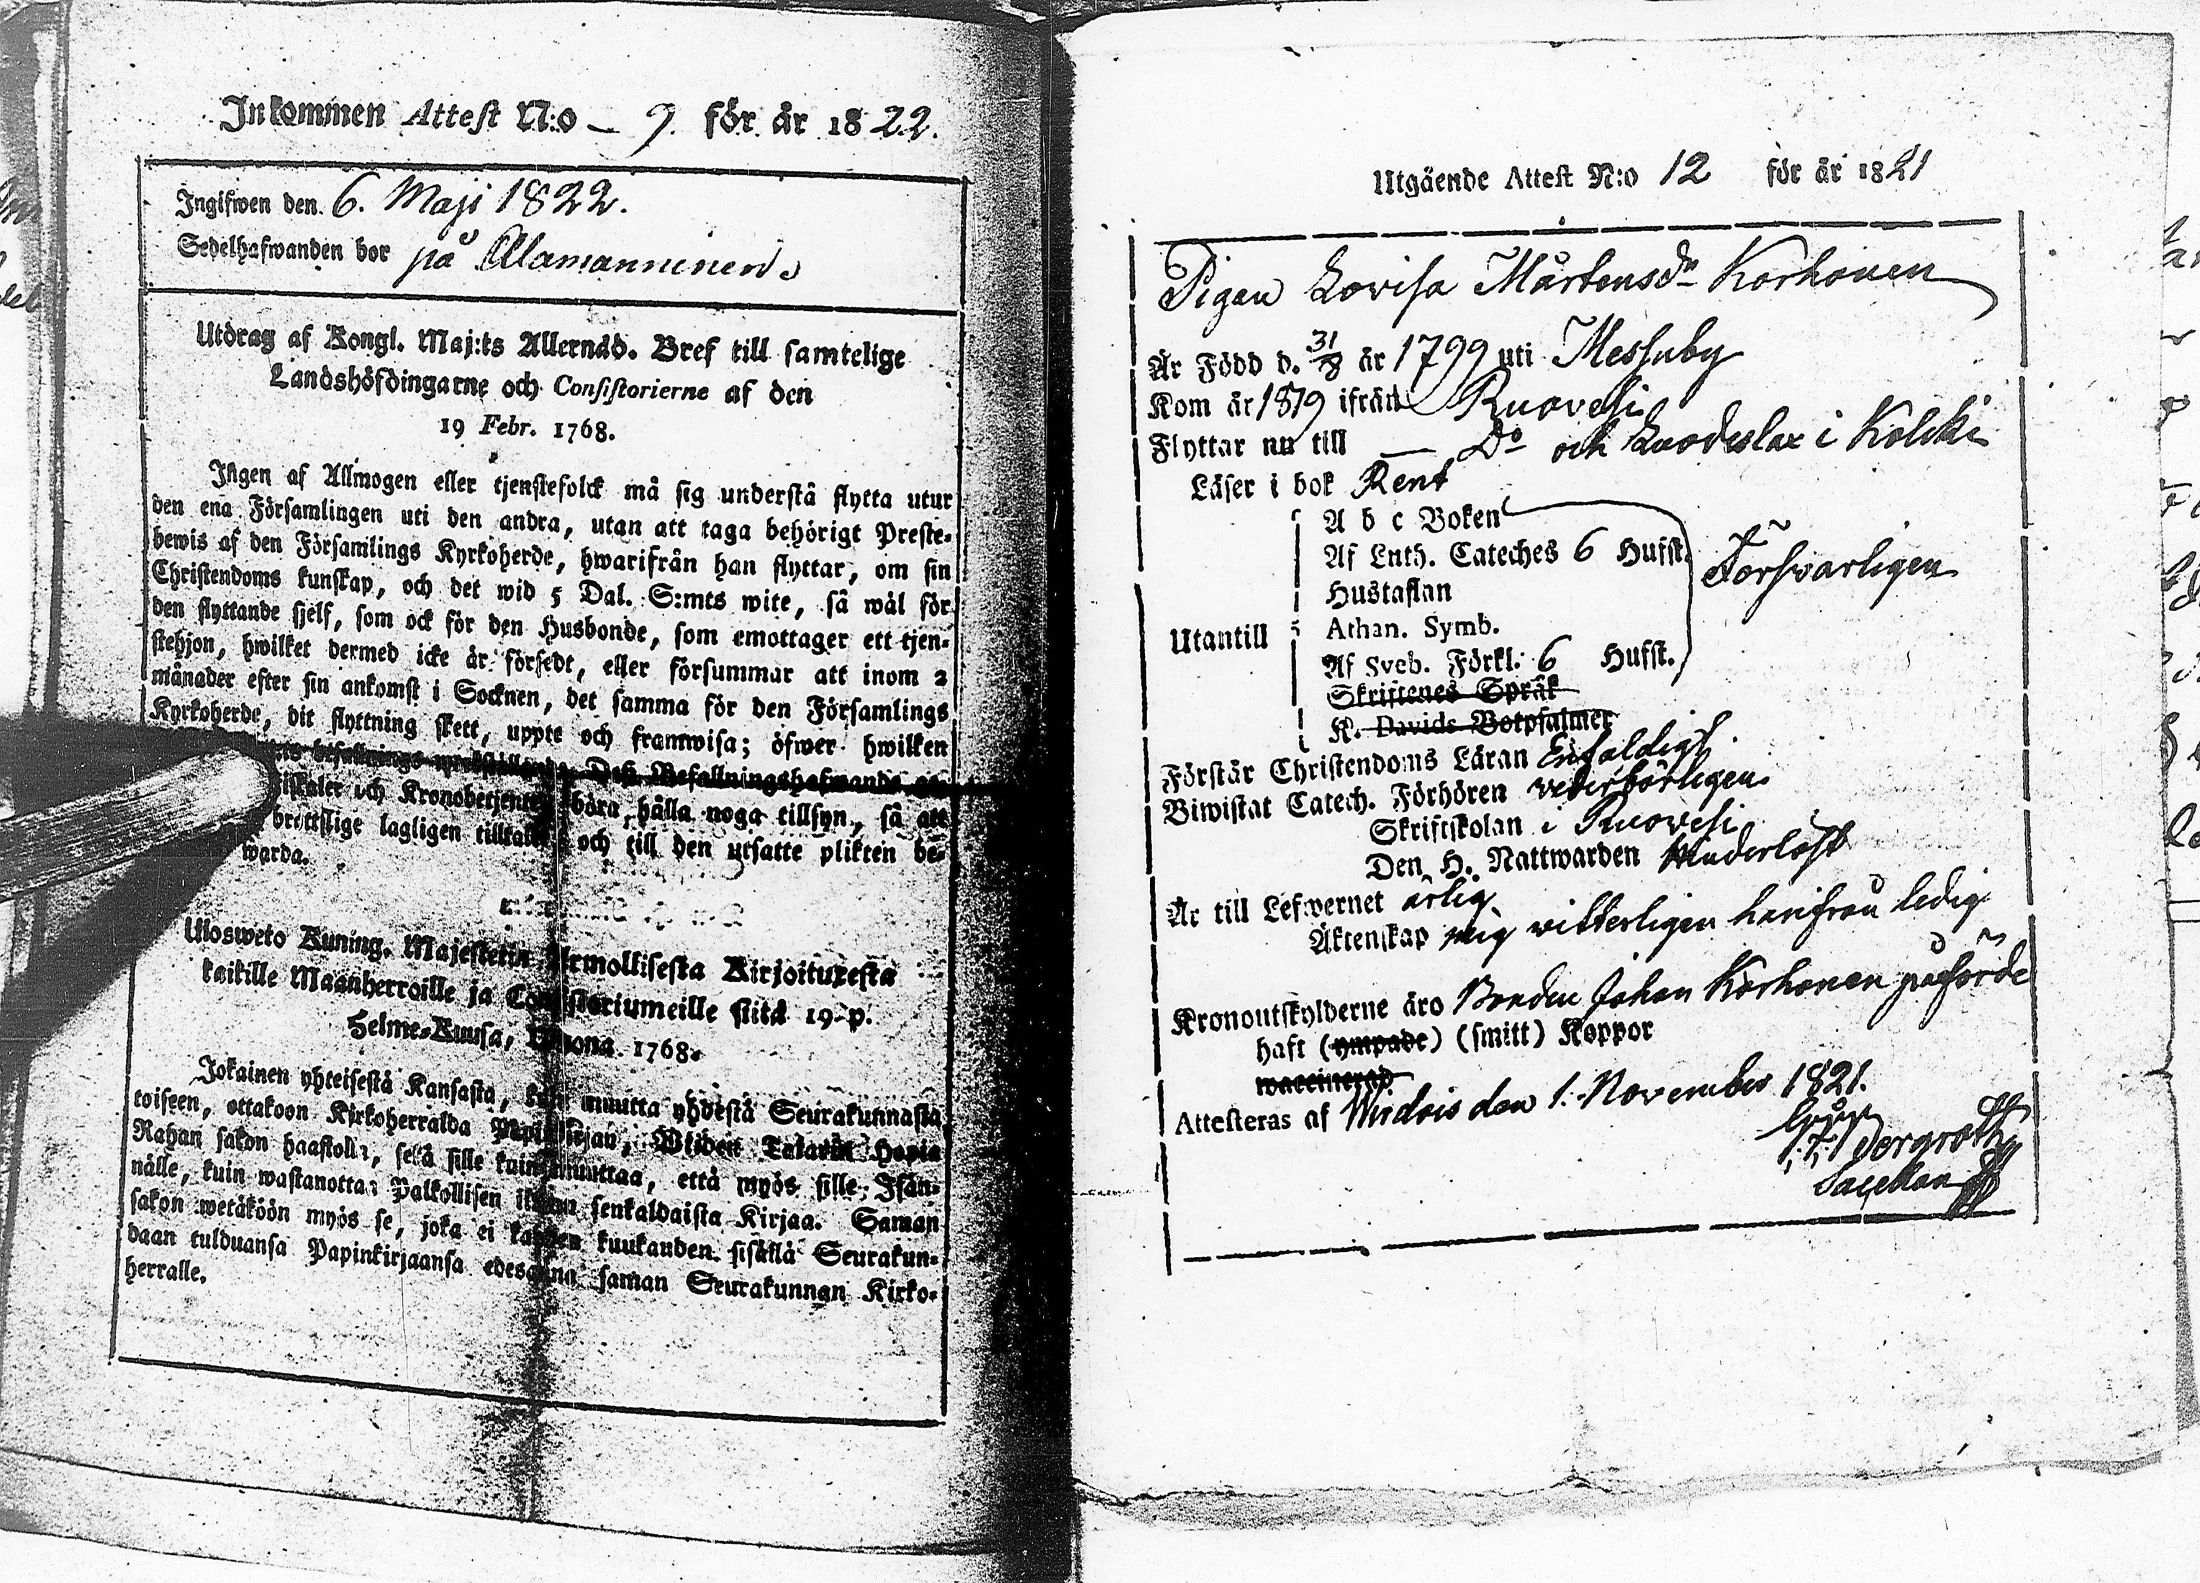 Inkommen Attest N:o – 9. för år 1822.
Ingifwen den 6. Maji 1822.
Sedelhafwanden bor på Alamanninen
Utdrag af Kongl. Maj:ts Allernåd. Bref till samtelige
Landshöfdingarne och Consistorierne af den
19 Febr. 1768.
Ingen af Allmogen eller tjenstefolck må sig understå flytta utur
den ena Församlingen uti den andra, utan att taga behörigt Preste-
bewis af den Församlings Kyrkoherde, hwarifrån han flyttar, om sin
Christendoms kunskap, och det wid 5 Dal. S:mts wite, så wäl för
den flyttande sjelf, som ock för den Husbonde, som emottager ett tjen-
stehjon, hwilket dermed icke är försedt, eller försummar att inom 2
månader efter sin ankomst i Socknen, det samma för den Församlings
Kyrkoherde, dit flyttning skett, uppte och framwisa; öfwer hwilken
befallnings werkställande Dess Befallningshafwande
och Kronobetjente böra hålla noga tillsyn, så att
brottslige lagligen tilltalas och till den utsatte plikten be-
warda.
Ulosweto Kuning. Majestetin Armollisesta Kirjoituxesta
kaikille Maanherroille ja Consistoriumeille siitä 19 p.
Helme-Kuusa, Wuonna 1768.
Jokainen yhteisestä Kansasta, kuin muutta yhdestä Seurakunnasta
toiseen, ottakoon Kirkoherralda Papinkirjan, Wiiden Talarin Hopia
Rahan sakon haastolla, sekä sille kuin muuttaa, että myös sille Isän-
nälle, kuin wastanottaa Palkollisen ilman senkaldaista Kirjaa. Saman
sakon wetäköön myös se, joka ei kahden kuukauden sisällä Seurakun-
daan tulduansa Papinkirjaansa edesanna saman Seurakunnan Kirko-
herralle.
Utgående Attest N:o 12 för år 1821
Pigan Lovisa Mårtensdr Korhonen
Är Född d. 31/8 år 1799 uti Messuby
Kom år 1819 ifrån Ruovesi
Flyttar nu till — Do och i Kolcki
Läser i bok Rent
A b c Boken
Af Luth. Cateches 6 Hufst.
Försvarligen
Hustaflan
Utantill
Athan. Symb.
Af Sveb. Förkl. 6 Hufst.
Skriftenes Språk
K. Davids Botpsalmer
Förstår Christendoms Läran Enfaldigt
Biwistat Catech. Förhören vederbörligen
Skriftskolan i Ruovesi
Den H. Nattwarden
Är till Lefwernet ärlig
Äktenskap mig vitterligen härifrån ledig
Kronoutskylderne äro Bonden Johan Korhonen påförde
haft (ympade) (smitt) Koppor
waccinerad
Attesteras af Wirdois den 1. November 1821.